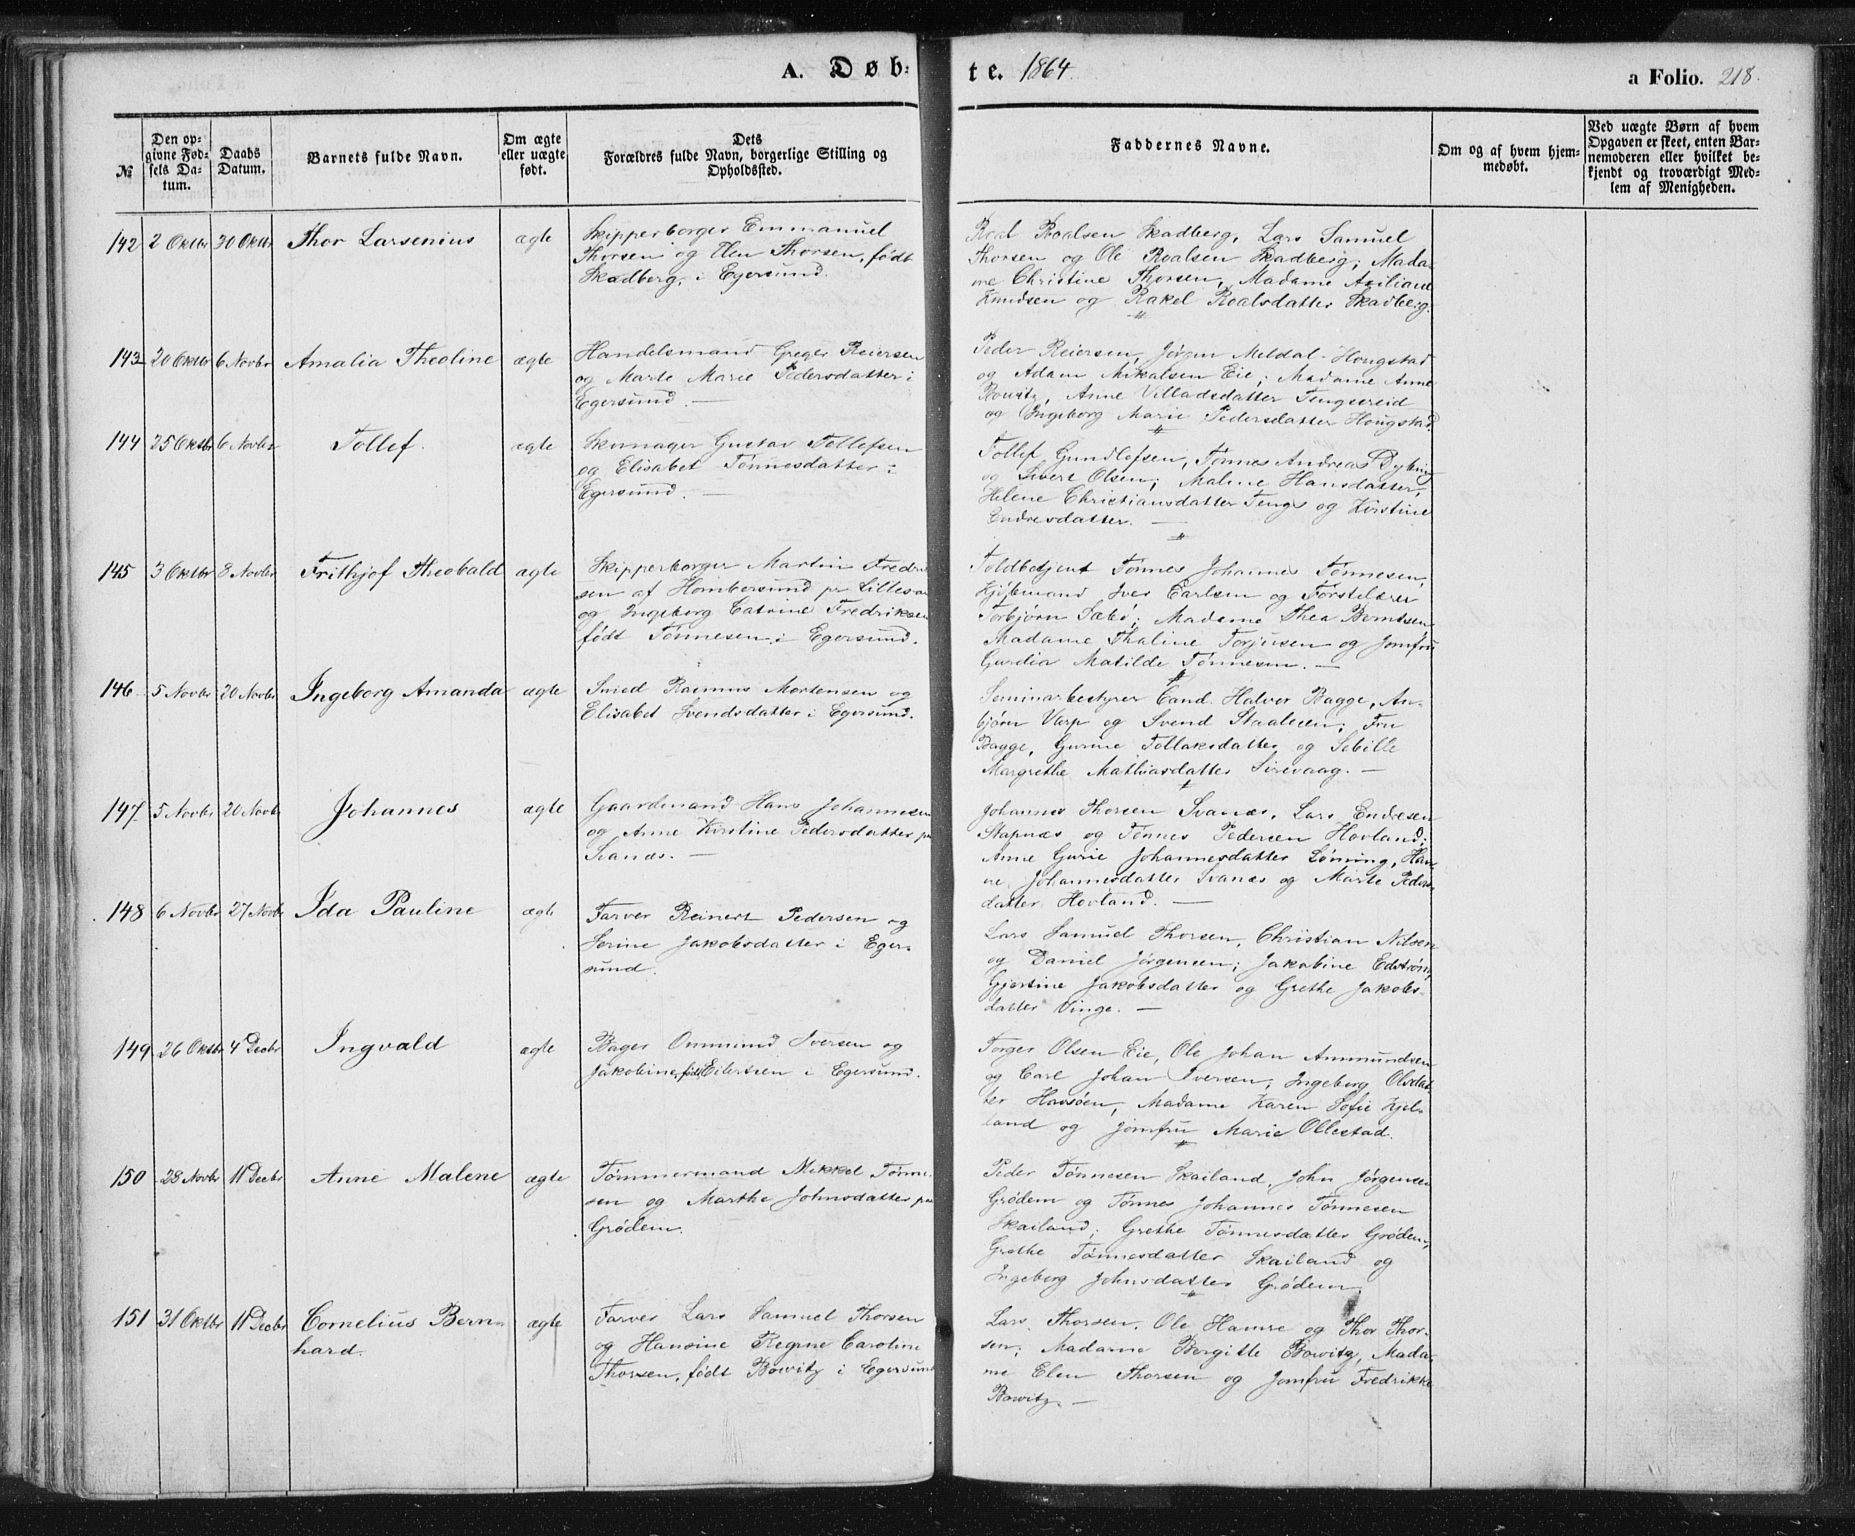 A. Døb-
te. 1864.
a Folio. 218.
№
Den op-
givne Fød-
sels Da-
tum.
Daabs
Datum.
Barnets fulde Navn.
Om ægte
eller uægte
født.
Dets
Forældres fulde Navn, borgerlige Stilling og
Opholdssted.
Faddernes Navne.
Om og af hvem hjem-
medøbt.
Ved uægte Børn af hvem
Opgaven er skeet, enten Bar-
nemoderen eller hvilket be-
kjendt og troværdigt Med-
lem af Menigheden.
142 2 Oktbr 30 Oktbr Thor Larsenius ægte
Skipperborger Emmanuel
Thorsen og Elen Thorsen, født
Skadberg, i Egersund.
Roal Roalsen Skadberg, Lars Samuel
Thorsen og Ole Roalsen Skadberg; Mada-
me Christine Thorsen, Madame Axiliane
Knudsen og Rakel Roalsdatter Skadberg.
143 20 Oktbr 6 Novbr Amalia Theoline ægte
Handelsmand Greger Reiersen
og Marte Marie Pedersdatter i
Egersund. —
Peder Reiersen, Jørgen Meldal Hougstad
og Adam Mikalsen Eie; Madame Anne
Bowitz, Anne Villadsdatter Tengsereid
og Ingeborg Marie Pedersdatter Hougstad.
144 25 Oktbr 6 Novbr Tollef. ægte
Skomager Gustav Tollefsen
og Elisabet Tønnesdatter i
Egersund. —
Tollef Gundlefsen, Tønnes Andreas Dybing
og Sivert Olsen; Maline Hansdatter,
Helene Christiansdatter Tengs og Kirstine
Endresdatter. —
145 3 Oktbr 8 Novbr Frithjof Theobald ægte
Skipperborger Martin Fredrik-
sen af Hombersund pr Lillesand
og Ingeborg Catrine Fredriksen
født Tønnesen i Egersund.
Toldbetjent Tønnes Johannes Tønnesen,
Kjøbmand Iver Carlsen og Førstelærer
Torbjørn Sæbø; Madame Thea Berntsen
Madame Thaline Torjusen og Jomfru
Gurdia Matilde Tønnesen. —
146 5 Novbr 20 Novbr Ingeborg Amanda ægte
Smed Rasmus Mortensen og
Elisabet Svendsdatter i Egersund.
Seminarbestyrer Cand. Halvor Bagge, An-
bjørn Varp og Svend Staalesen; Fru
Bagge, Gurine Tollaksdatter og Sebille
Margrethe Mathiasdatter Sirevaag. —
147 5 Novbr 20 Novbr Johannes ægte
Gaardmand Hans Johannesen
og Anne Kirstine Pedersdatter pr
Svanæs. —
Johannes Thorsen Svanæs, Lars Endresen
Stapnæs og Tønnes Pedersen Hovland;
Anne Gurie Johannesdatter Løining, Han-
ne Johannesdatter Svanæs og Marte Peders-
datter Hovland. —
148 6 Novbr 27 Novbr Ida Pauline ægte
Farver Reinert Pedersen og
Serine Jakobsdatter i Eger-
sund.
Lars Samuel Thorsen, Christian Nilsen
og Daniel Jørgensen; Jakobine Edstrøm,
Gjertine Jakobsdatter og Grethe Jakobs-
datter Vinge. —
149 26 Oktbr 4 Decbr Ingvald ægte
Bager Ommund Iversen og
Jakobine, født Eilertsen i Egersund.
Torger Olsen Eie, Ole Johan Ammundsen
og Carl Johan Iversen; Ingeborg Olsdat-
ter Havsøen, Madame Karen Sofie Kjel-
land og Jomfru Marie Ollestad.
150 28 Novbr 11 Decbr Anne Malene ægte
Tømmermand Mikkel Tønne-
sen og Marthe Johnsdatter paa
Grødem.
Peder Tønnesen Skailand, John Jørgensen
Grødem og Tønnes Johannes Tønnesen
Skailand; Grethe Tønnesdatter Grødem,
Grethe Tønnesdatter Skailand og
Ingeborg Johnsdatter Grødem.
151 31 Oktbr 11 Decbr Cornelius Bern-
hard. ægte
Farver Lars Samuel Thorsen
og Hansine Regine Caroline
Thorsen, født Bowitz i Egersund
Lars Thorsen, Ole Hamre og Thor Thor-
sen; Madame Bergitte Bowitz, Mada-
me Elen Thorsen og Jomfru Fredrikke
Bowitz. —